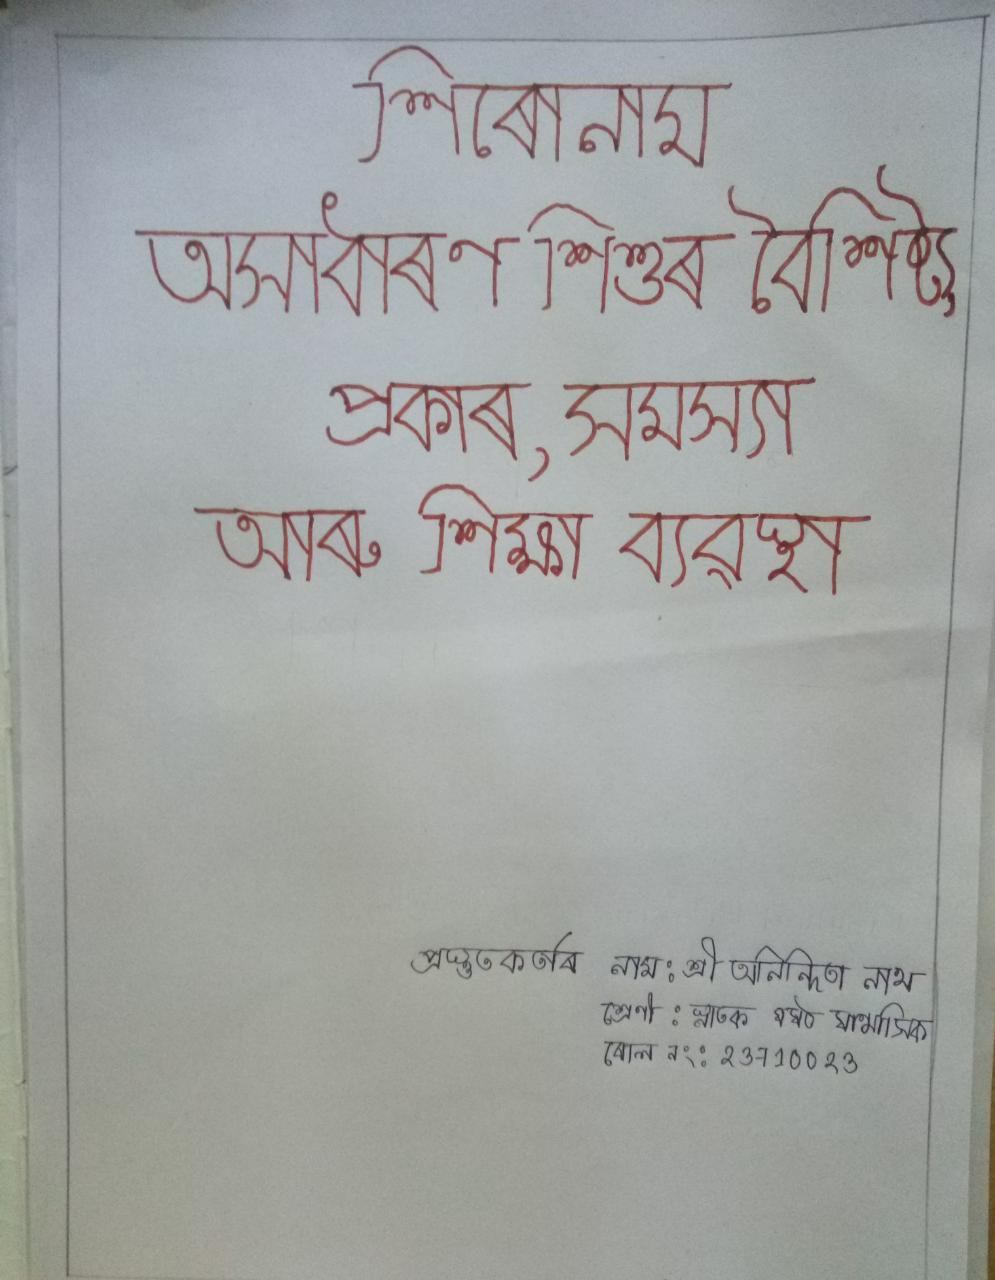 শিৰোনাম
অসাধাৰণ শিশুৰ বৈশিষ্ট্য,
প্ৰকাৰ, সমস্যা
আৰু শিক্ষা ব্যৱস্থা
প্ৰস্তুতকৰ্তাৰ নাম: শ্ৰী অনিন্দিতা নাথ
শ্ৰেণী : স্নাতক ষষ্ঠ ষাণ্মাসিক
ৰোল নং: 23710023